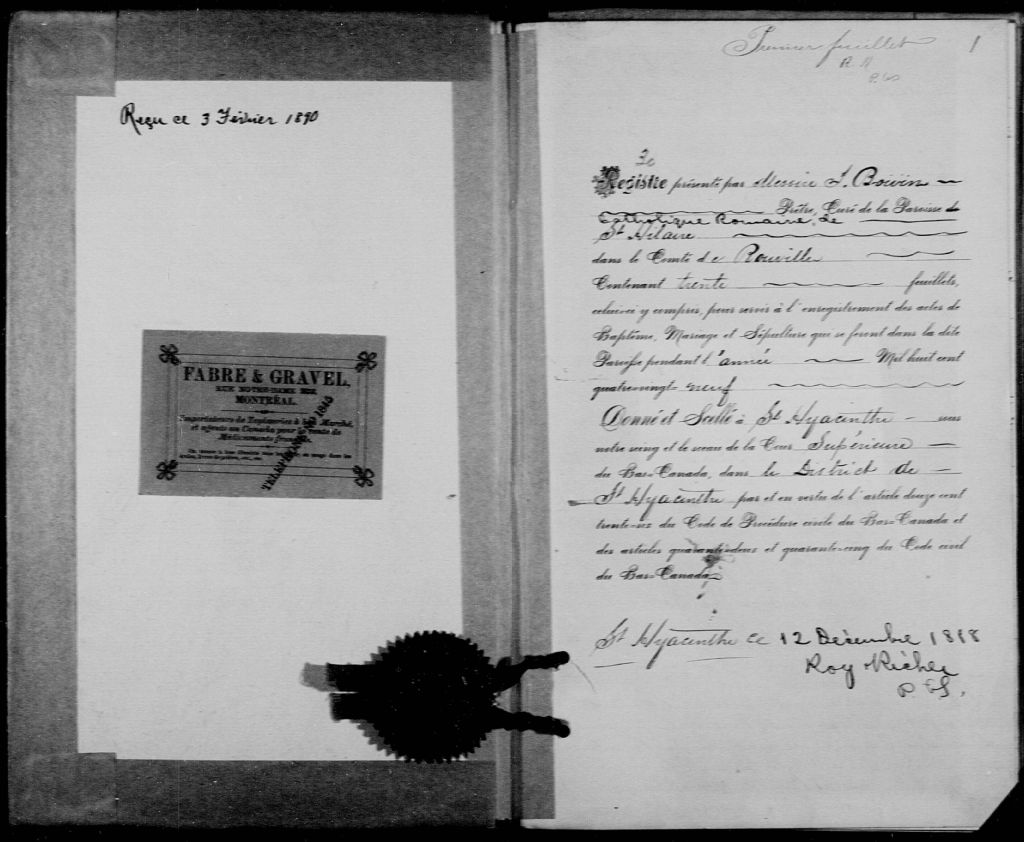 Reçu ce 3 Février 1890
FABRE & GRAVEL,
RUE NOTRE-DAME
MONTRÉAL.
Importateurs de Tapisseries à bon Marché,
et agents au Canada pour la vente de
Médicaments français.
TELEPHONE
Premier feuillet
1
R. R
P.CS
3e
Registre présenté par Messire J. Boivin
Prêtre, Curé de la Paroisse de
Catholique Romaine, de
St Hilaire
dans le Comté de Rouville
Contenant trente feuillets,
celui-ci y compris, pour servir à l'enregistrement des actes de
Baptême, Mariage et Sépulture qui se feront dans la dite
Paroisse pendant l'année Mil huit cent
quatre-vingt-neuf
Donné et Scellé à St Hyacinthe sous
notre seing et le sceau de la Cour Supérieure
du Bas-Canada, dans le District de
St Hyacinthe par et en vertu de l'article douze cent
trente-six du Code de Procédure civile du Bas-Canada et
des articles quarante-deux et quarante-cinq du Code civil
du Bas-Canada
St Hyacinthe ce 12 Décembre 1888
Roy Richer
P.CS.